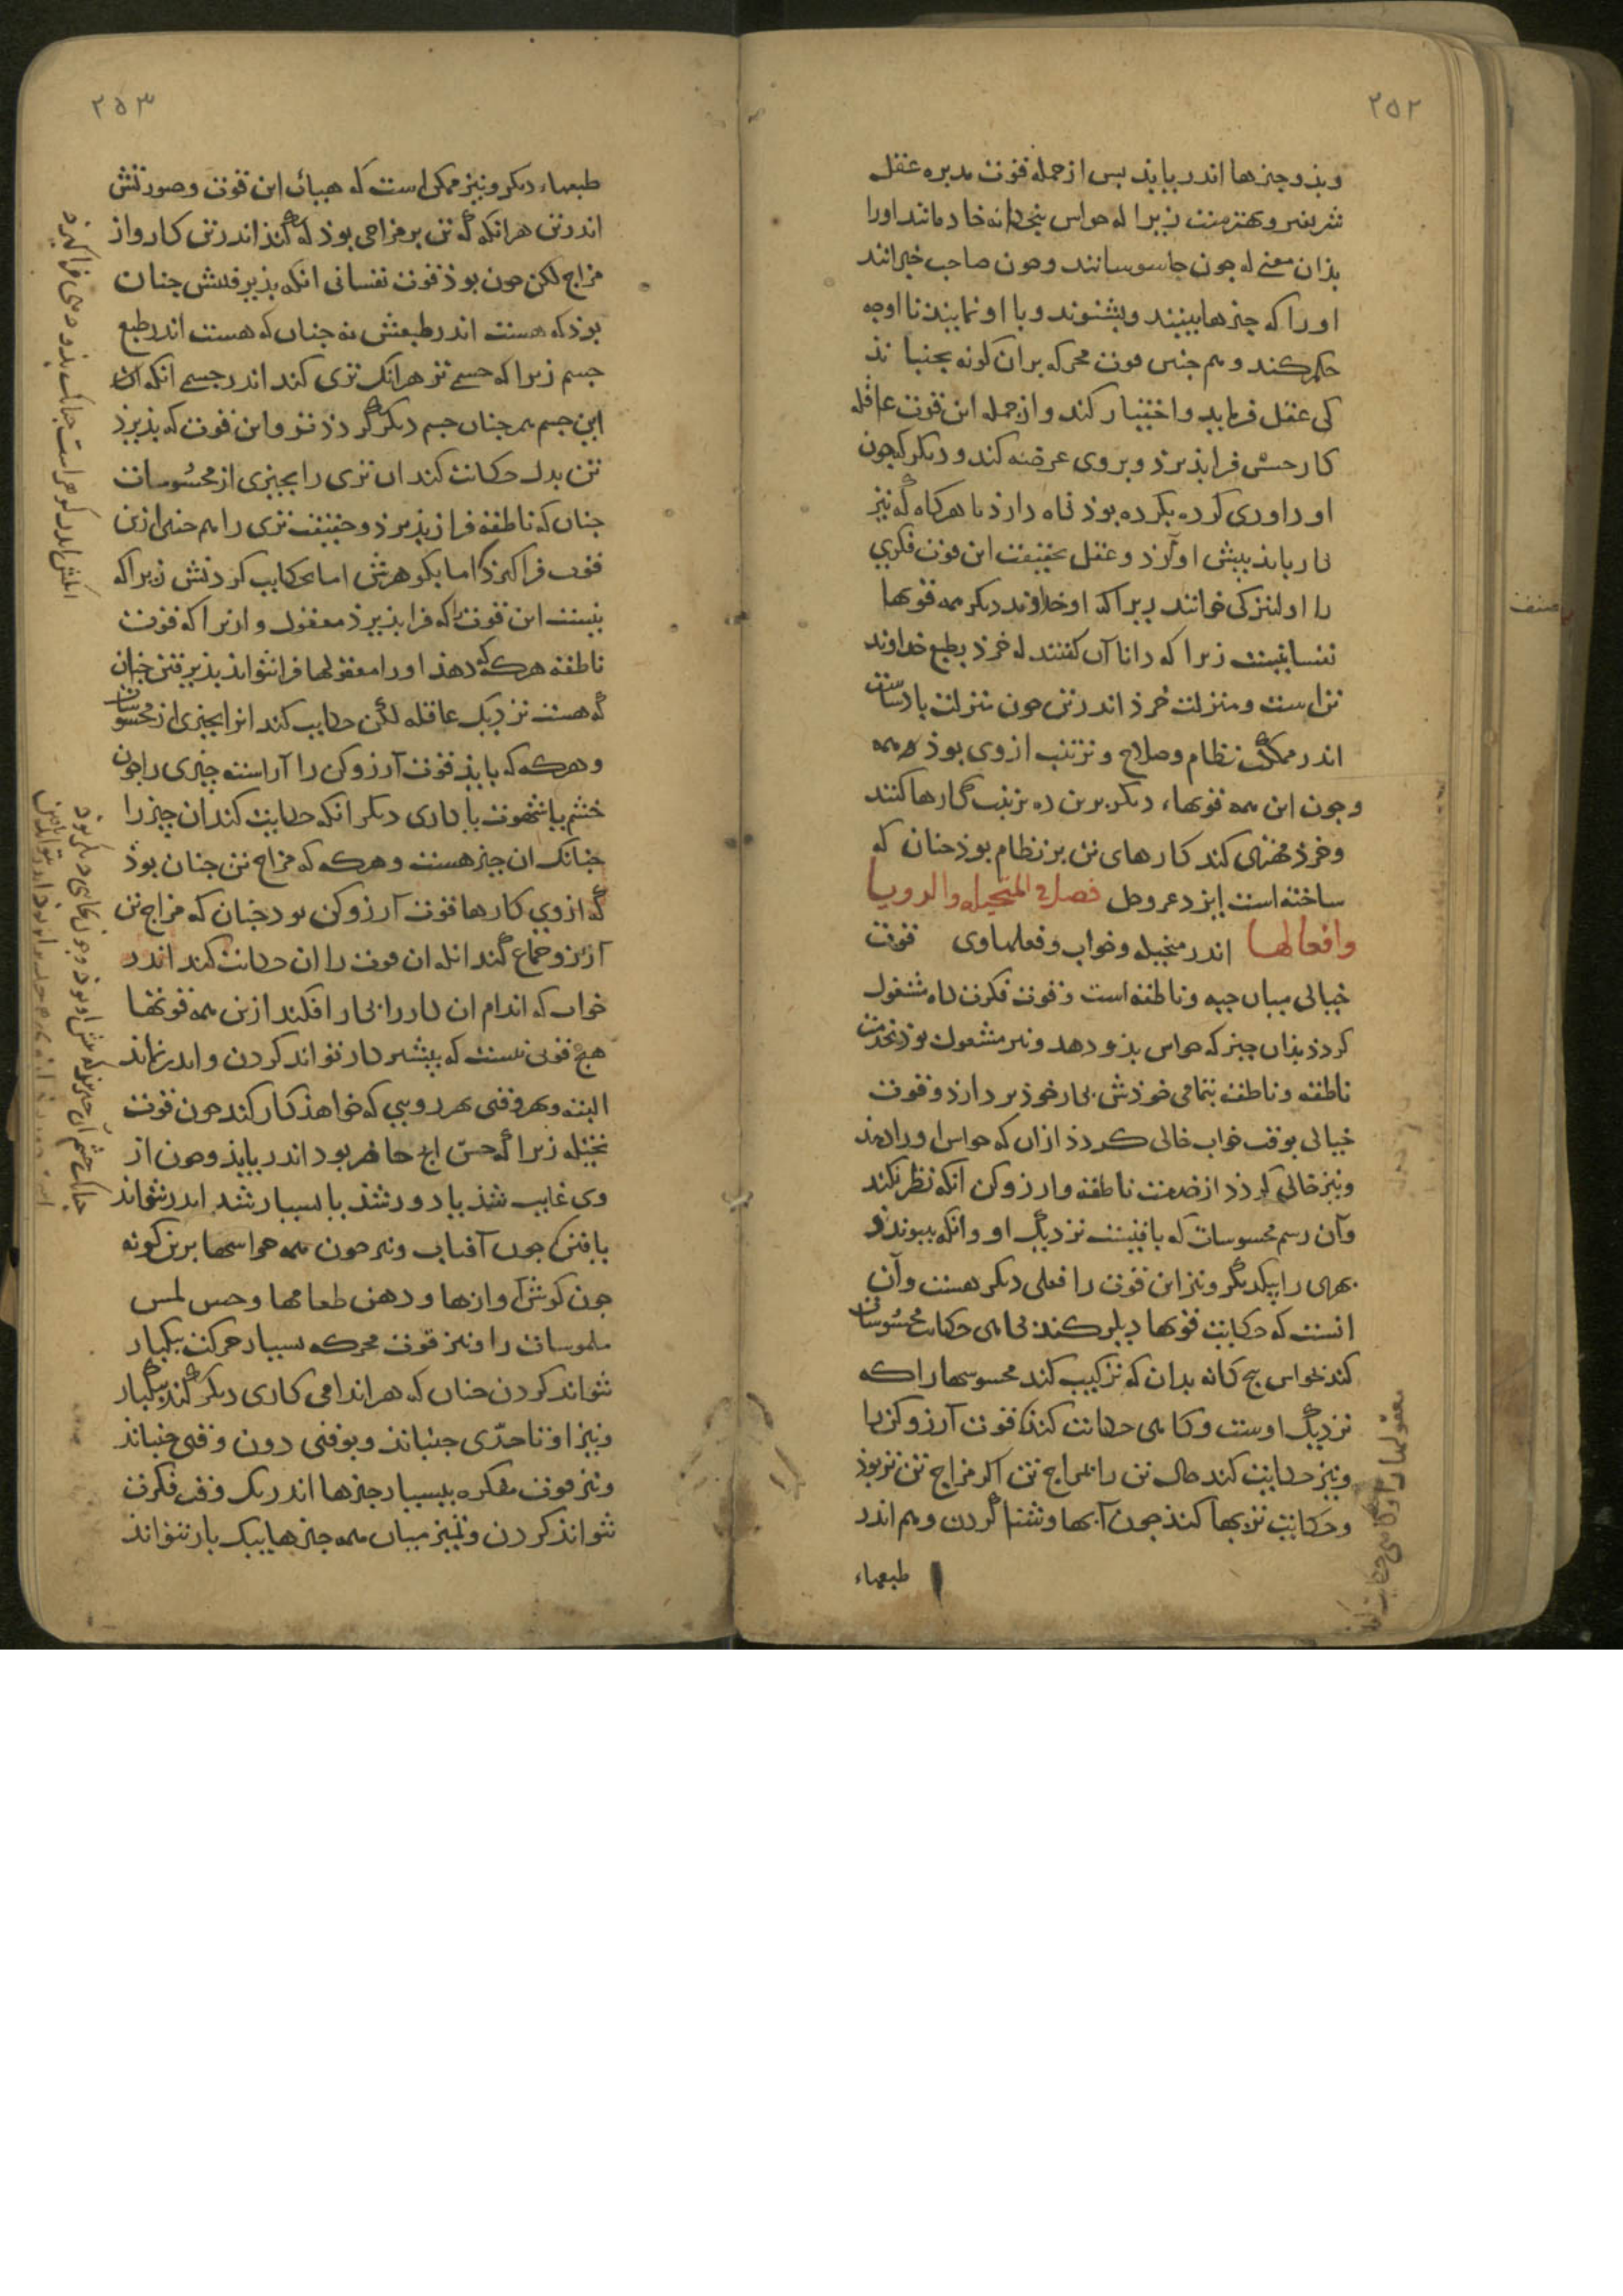 ۲۵۲
وبذو چیزها اندر یابد بس از جمله قوت مدبره عقل
شریفتر و بهتر منست زیرا که حواس پنج‌گانه خادمانند اورا
بذان معنی که جون جاسوسانند وجون صاحب خبرانند
اورا که چیزها بینند وبشنوند وبا او نمایند تا اوجه
حکم کند وهم جنس قوت محرکه بران کونه بجنباند
کی عقل فرماید واختیار کند واز جمله این قوت عاقله
کار حسش فرابذیرذ وبروی عرضه کند ودیکر کجون
اوداوری کرده بکرده بوذ نکاه دارذ تا هرکاه که نیز
بکار بایذ بیش اوآرذ وعقل بحقیقت این قوت فکری
را اولیتر کی خوانند زیرا که او خداوند دیکر همه قوتها
نفسانیست زیرا که دانا آن کفتند که خرذ بطبع خداوند
تن است ومنزلت خرذ اندر تن جون منزلت پادشاست
اندر مملکت نظام وصلاح وترتیب ازوی بوذ همه
وجون این همه قوتهاء دیکر برین ره ترتیب کارها کنند
وخرذ مهتری کند کارهای تن بر نظام بوذ جنان که
ساخته است ایزد عزوجل فصل فی المتخیله والرویا
وافعالها اندر متخیله وخواب وفعلهاوی قوت
خیالی میان جیه وناطقه است وقوت فکرت کاه مشغول
کردذ بذان چیز که حواس بذو دهد ونیز مشغول بوذ بخدمت
ناطقه وناطقه بتمامی خوذش بکار خوذ بر دارذ وقوت
خیالی بوقت خواب خالی کردذ ازان که حواس اورا دهذ
ونیز خالی کردذ از خدمت ناطقه وارزوکن آنکه نظر بکند
وآن رسم محسوسات که یافتست نزدیک او وانکه بپیوندذ
بهری را بیکدیکر ونیز این قوت را فعلی دیکر هست وآن
آنست که حکایت قوتها دیکر کند کاهی حکایت محسوسات
کند حواس پنج کانه بدان که ترکیب کند محسوسها را که
نزدیک اوست وکاهی حکایت کند قوت آرزوکن را
ونیز حکایت کند حال تن را بمزاج تن اکر مزاج تن تر بوذ
وحکایت تریها کند جون آبها وشنا کردن وهم اندر
طبعهاء
معقولها را وکاهی حکایت کند
مصنف
۲۵۳
طبعهاء دیکر ونیز ممکن است که هیأت این قوت وصورتش
اندر تن هرانکه که تن بر مزاجی بوذ که کند اندر تن کارواز
مزاج لکن جون بوذ قوت نفسانی انکه بذیرفتنش جنان
بوذ که هست اندر طبعش نه جنان که هست اندر طبع
جسم زیرا که جسمی تر هرانک تری کند اندر جسمی انکه ان
این جسم همجنان جسم دیکر کردذ تر واین قوت که بذیرذ
تن بدل حکایت کند ان تری را بچیزی از محسوسات
جنان که ناطقه فراز بذیرذ وحقیقت تری را هم جنین ازین
قوت فراکیرذ اما بکوهرش اما بحکایت کردنش زیرا که
نیست این قوت را که فرابذیرذ معقول وازیرا که قوت
ناطقه هرکه که دهذ اورا معقولها فرانتواند بذیرفتن جنان
که هست نزدیک عاقله لکن حکایت کند انرا بچیزی از محسوسات
وهرکه که یابذ قوت آرزوکن را آراسته چیزی را جون
خشم یا شهوت یا کاری دیکر انکه حکایت کند ان چیز را
جنانک ان چیز هست وهرکه که مزاج تن جنان بوذ
که ازوی کارها قوت آرزوکن بود جنان که مزاج تن
آرزو جماع کند انکه ان قوت را ان حکایت کند اندر
خواب که اندام ان کار را بکار افکند ازین همه قوتها
هیچ قوتی نیست که بیشتر کار تواند کردن واندر نماند
البته وبهر وقتی بهر رویی که خواهذ کار کند جون قوت
تخیله زیرا که حس انج حاضر بود اندر یابذ وجون از
وی غایب شذ یا دور شذ یا بسیار شد اندر نتواند
یافتن جون آفتاب ونیز جون همه حواسها برین کونه
جون کوش آوازها ودهن طعامها وحس لمس
ملموسات را ونیز قوت محرکه بسیار حرکت بیکبار
نتواند کردن جنان که هر اندامی کاری دیکر کند بیکبار
ونیز او تا حدّی جنباند وبوقتی دون وقتی جنباند
ونیز قوت مفکره ببسیار چیزها اندر یک وقت فکرت
نتواند کردن وتمییز میان همه چیزها بیک بار نتواند